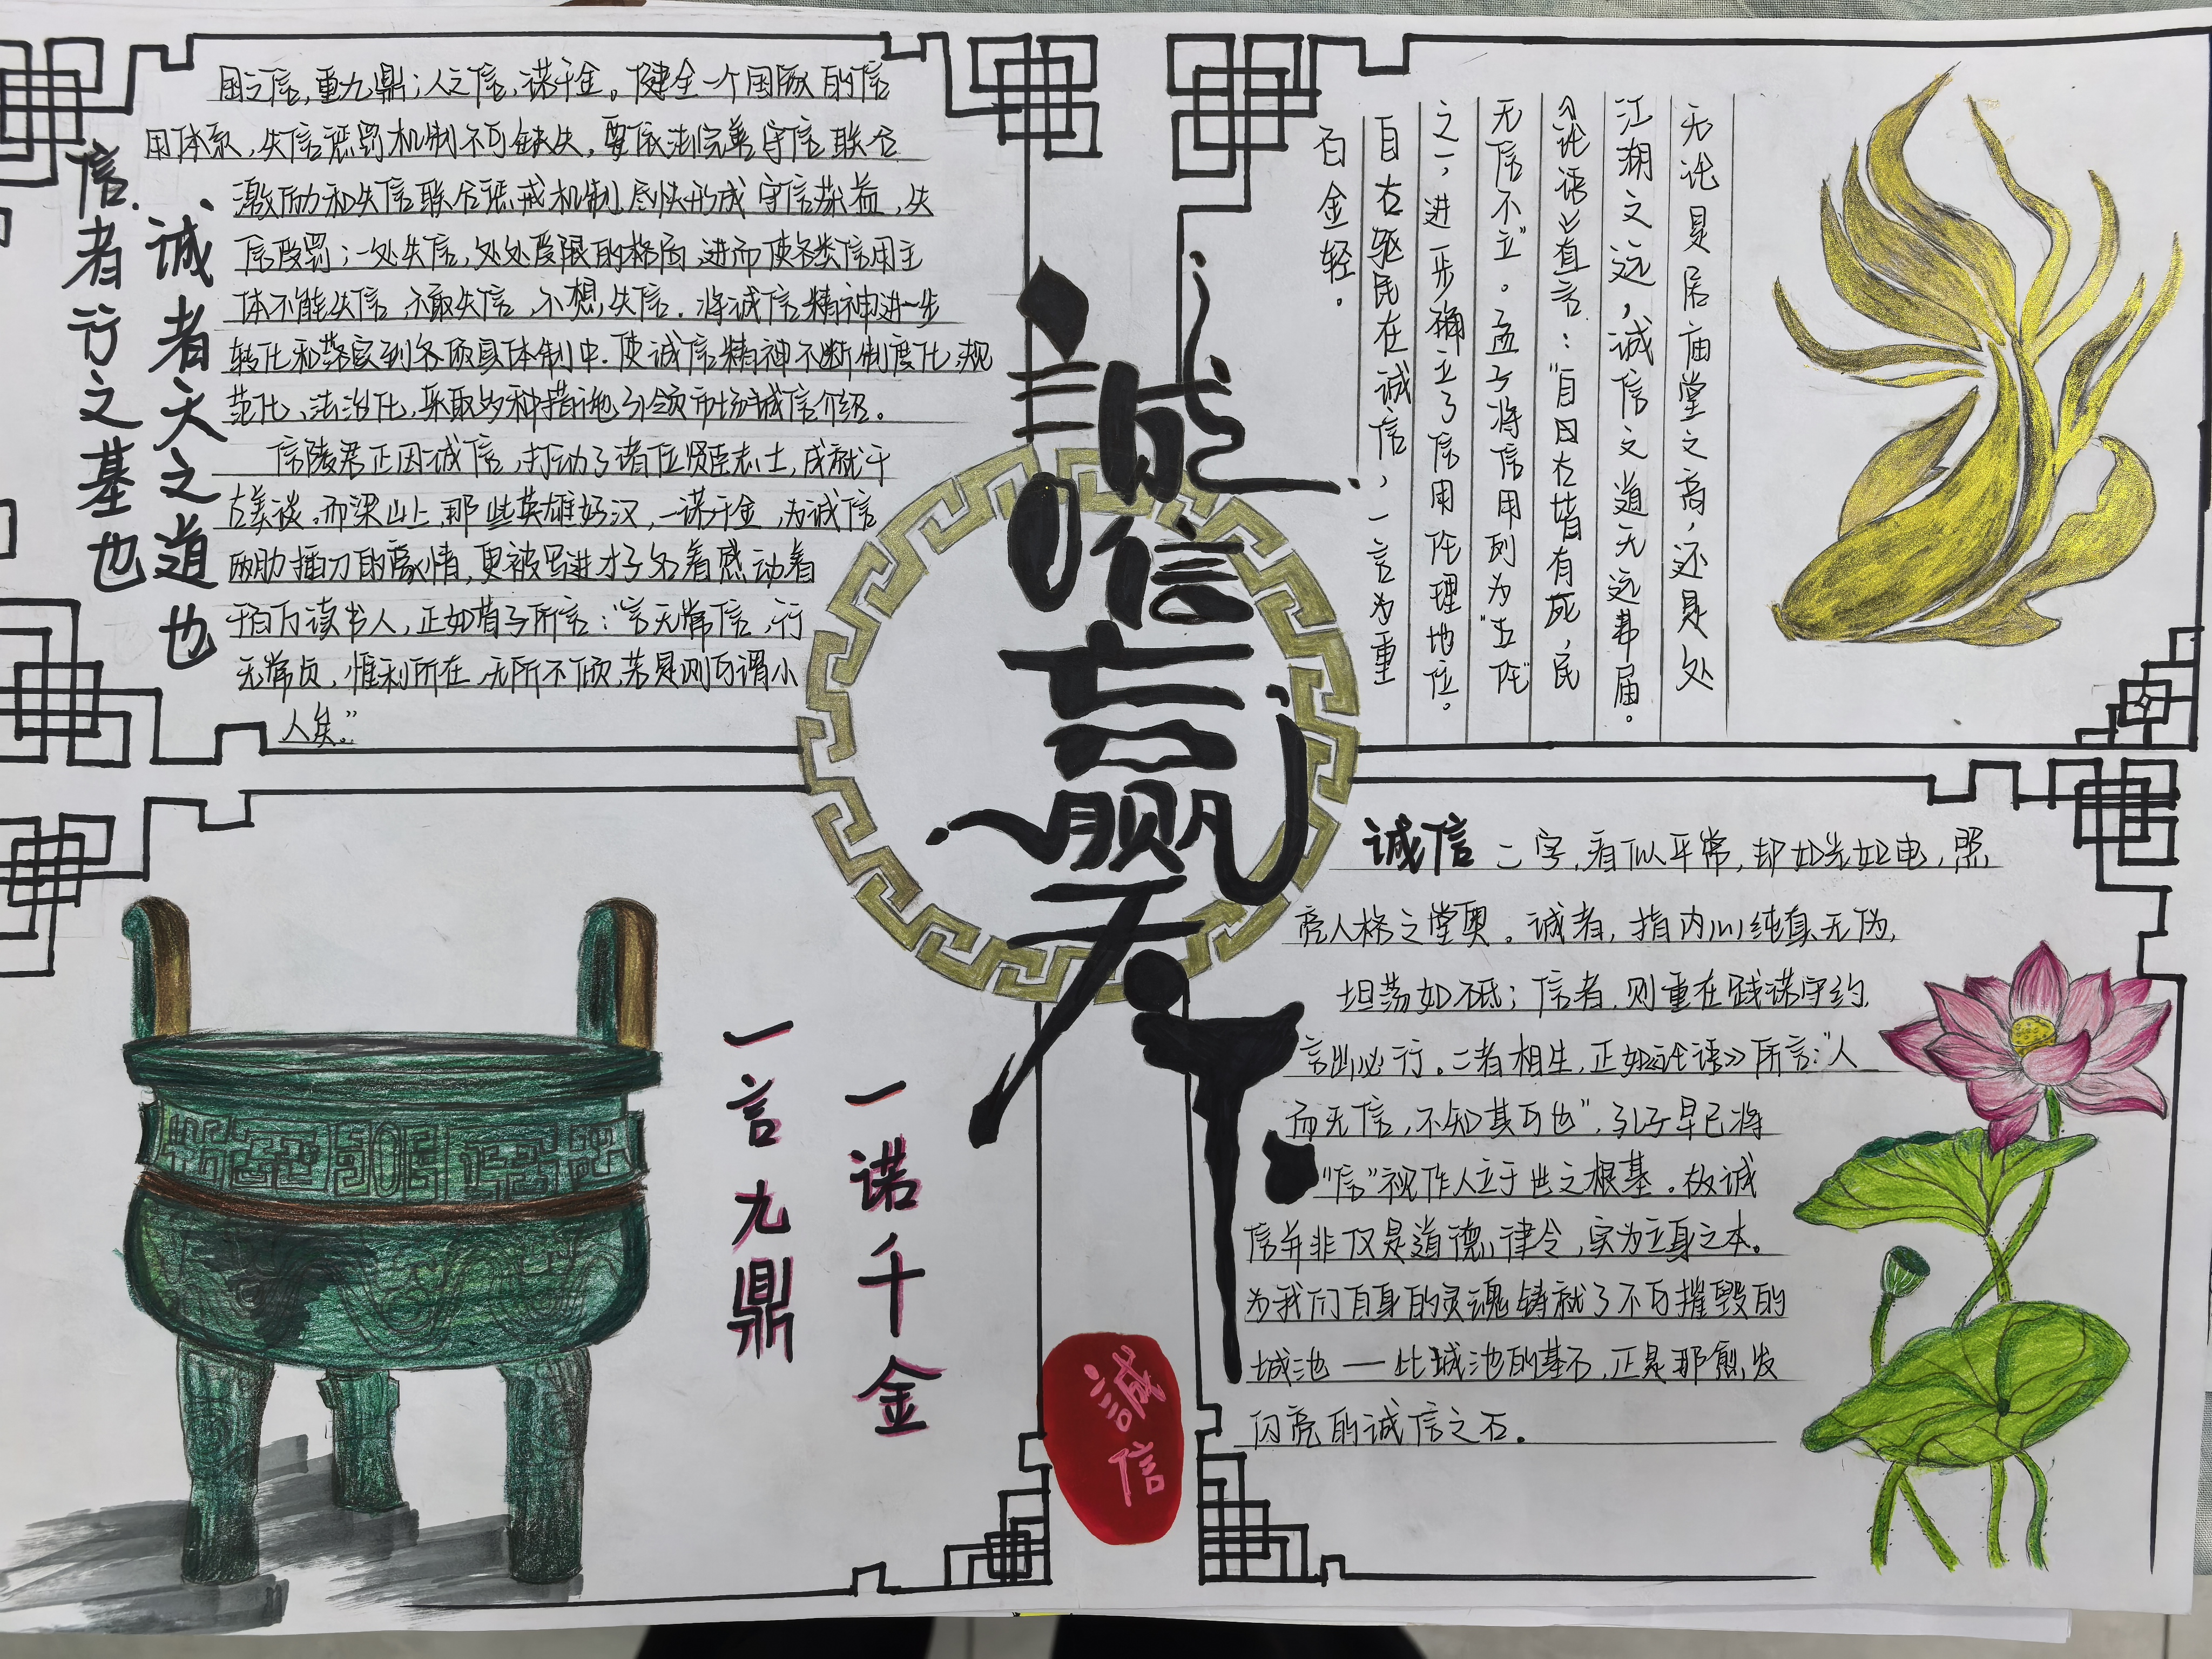 国之信，重九鼎；人之信，诺千金。健全一个国家的信
用体系，失信惩罚机制不可缺失，要依法完善守信联合
激励和失信联合惩戒机制，尽快形成守信获益，失
信受罚；一处失信，处处受限的格局，进而使各类信用主
体不能失信，不敢失信，不想失信。将诚信精神进一步
转化和落实到各项具体制中，使诚信精神不断制度化、规
范化、法治化，采取多种措施引领市场诚信介绍。
信陵君正因诚信，打动了诸位贤臣志士，成就千
古美谈。而梁山上，那些英雄好汉，一诺千金，为诚信
两肋插刀的豪情，更被写进才子名着感动着
千百万读书人，正如荀子所言：“言无常信，行
无常贞，惟利所在，无所不倾，若是则可谓小
人矣。”
诚者天之道也
信者行之基也
誠信
赢
天下
无论是居庙堂之高，还是处
江湖之远，诚信之道无远弗届。
《论语》直言：“自古皆有死，民
无信不立”。孟子将信用列为“五伦”
之一，进一步确立了信用伦理地位。
自古驱民在诚信，一言为重
百金轻。
一诺千金
一言九鼎
誠信
诚信二字，看似平常，却如光如电，照
亮人格之堂奥。诚者，指内心纯真无伪，
坦荡如砥；信者，则重在践诺守约，
言出必行。二者相生，正如《论语》所言：“人
而无信，不知其可也”，孔子早已将
“信”视作人立于世之根基。故诚
信并非仅是道德律令，实为立身之本。
为我们自身的灵魂铸就了不可摧毁的
城池——此城池的基石，正是那愈发
闪亮的诚信之石。